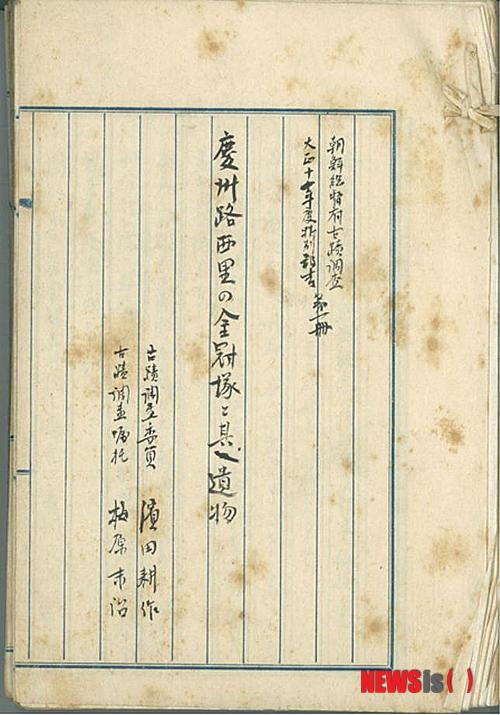 朝鮮総督府古蹟調査
大正十年度特別報告 第一冊
慶州路西里の金冠塚と其遺物
古蹟調査委員 濱田耕作
古蹟調査嘱托 梅原末治
NEWSis( )